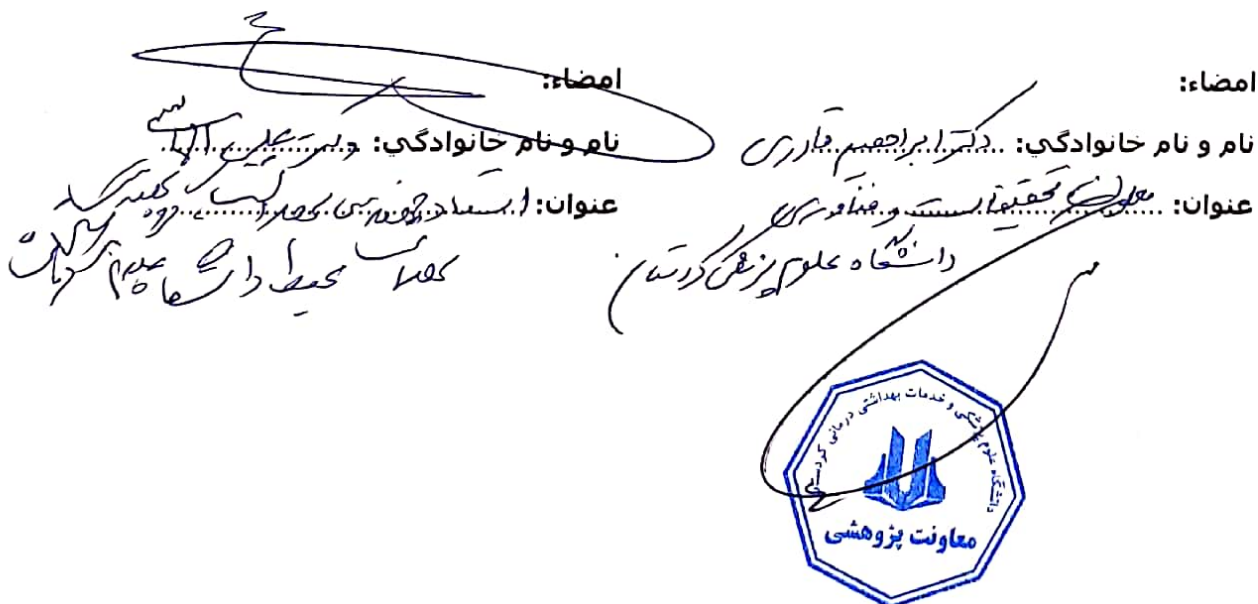 امضاء:
نام و نام خانوادگي: دکتر ابراهیم قادری
عنوان: معاون تحقیقات و فناوری
دانشگاه علوم پزشکی کردستان
امضاء:
نام و نام خانوادگي: دکتر
عنوان: استاد مهندسی بهداشت
محیط دانشگاه علوم پزشکی
دانشگاه علوم پزشکی و خدمات بهداشتی درمانی کردستان
معاونت پژوهشی